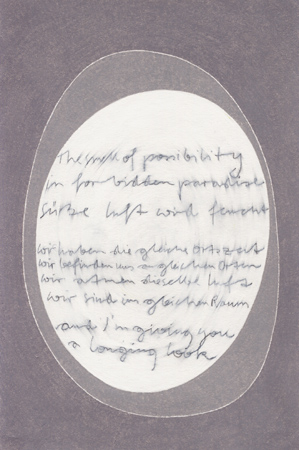 The of possibility
in forbidden paradise
Süße Luft wird feucht
wir haben die gleiche Ortszeit
wir befinden uns a gleichen Orten
wir atmen dieselbe Luft
wir sind im gleichen Raum
and I'm giving you
a longing look